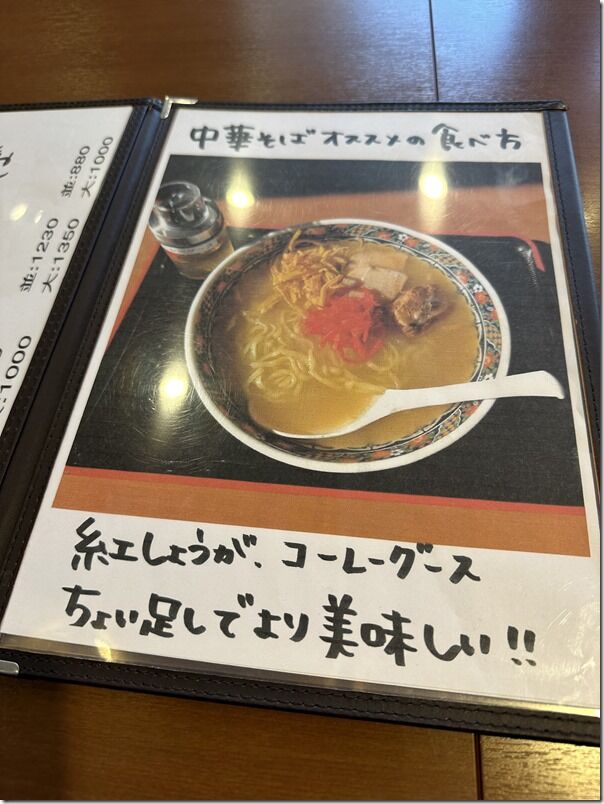 中華そばオススメの食べ方
紅しょうが、コーレーグース
ちょい足しでより美味しい!!
ば
並:880
大:1000
並:1230
大:1350
:1000